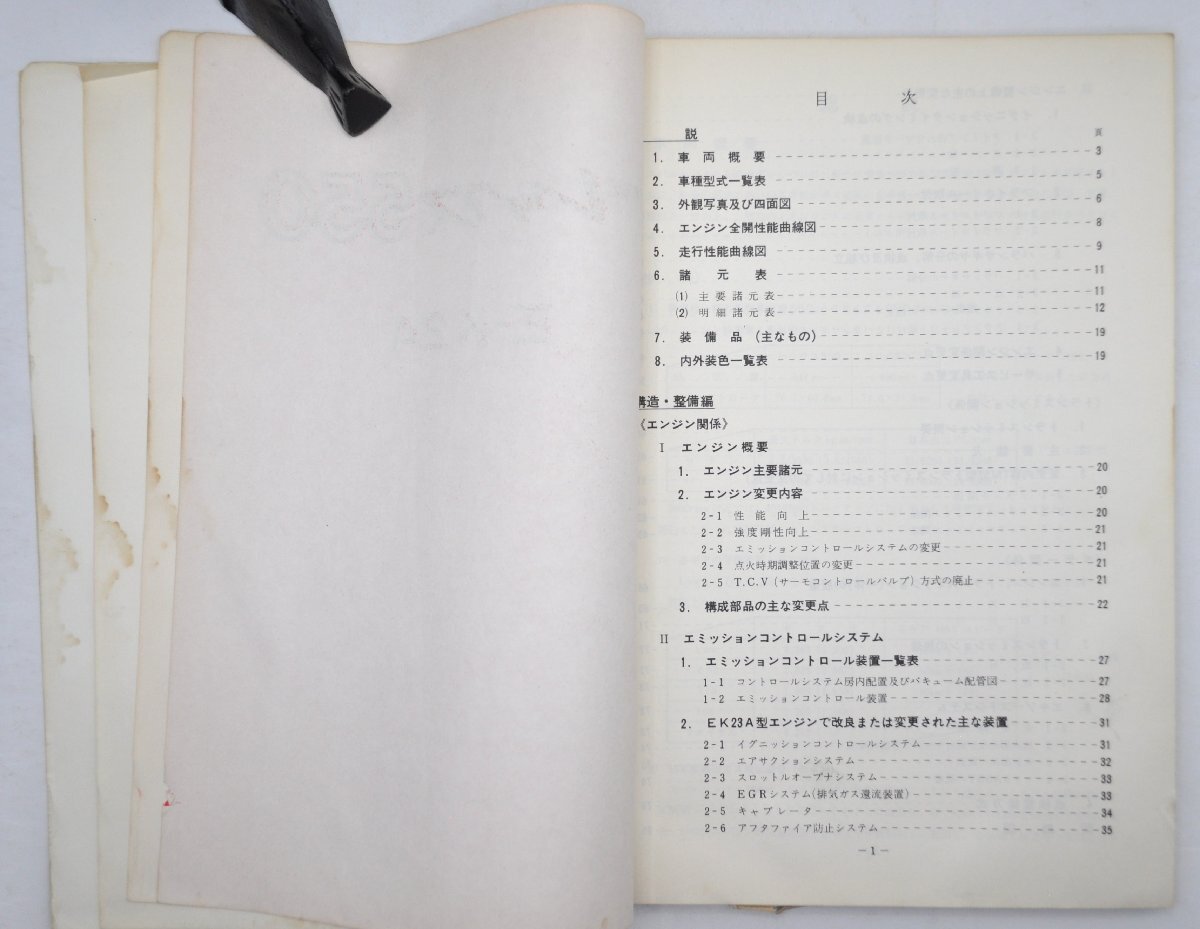 目次
説
頁
1. 車両概要 3
2. 車種型式一覧表 5
3. 外観写真及び四面図 6
4. エンジン全開性能曲線図 8
5. 走行性能曲線図 9
6. 諸元表 11
(1) 主要諸元表 11
(2) 明細諸元表 12
7. 装備品(主なもの) 19
8. 内外装色一覧表 19
構造・整備編
《エンジン関係》
I エンジン概要
1. エンジン主要諸元 20
2. エンジン変更内容 20
2-1 性能向上 20
2-2 強度剛性向上 21
2-3 エミッションコントロールシステムの変更 21
2-4 点火時期調整位置の変更 21
2-5 T.C.V(サーモコントロールバルブ)方式の廃止 21
3. 構成部品の主な変更点 22
II エミッションコントロールシステム
1. エミッションコントロール装置一覧表 27
1-1 コントロールシステム房内配置及びバキューム配管図 27
1-2 エミッションコントロール装置 28
2. EK23A型エンジンで改良または変更された主な装置 31
2-1 イグニッションコントロールシステム 31
2-2 エアサクションシステム 32
2-3 スロットルオープナシステム 33
2-4 EGRシステム(排気ガス還流装置) 33
2-5 キャブレータ 34
2-6 アフタファイア防止システム 35
-1-